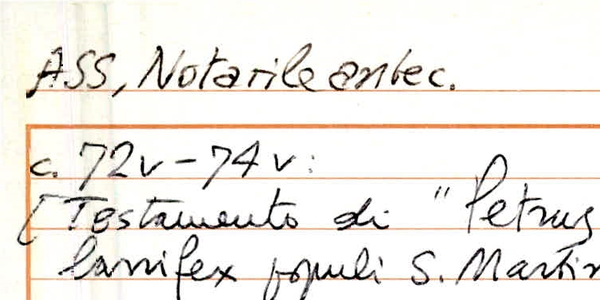 ASS, Notarile antec.
c. 72v - 74v:
[Testamento di "Petrus
lanifex populi S. Martin